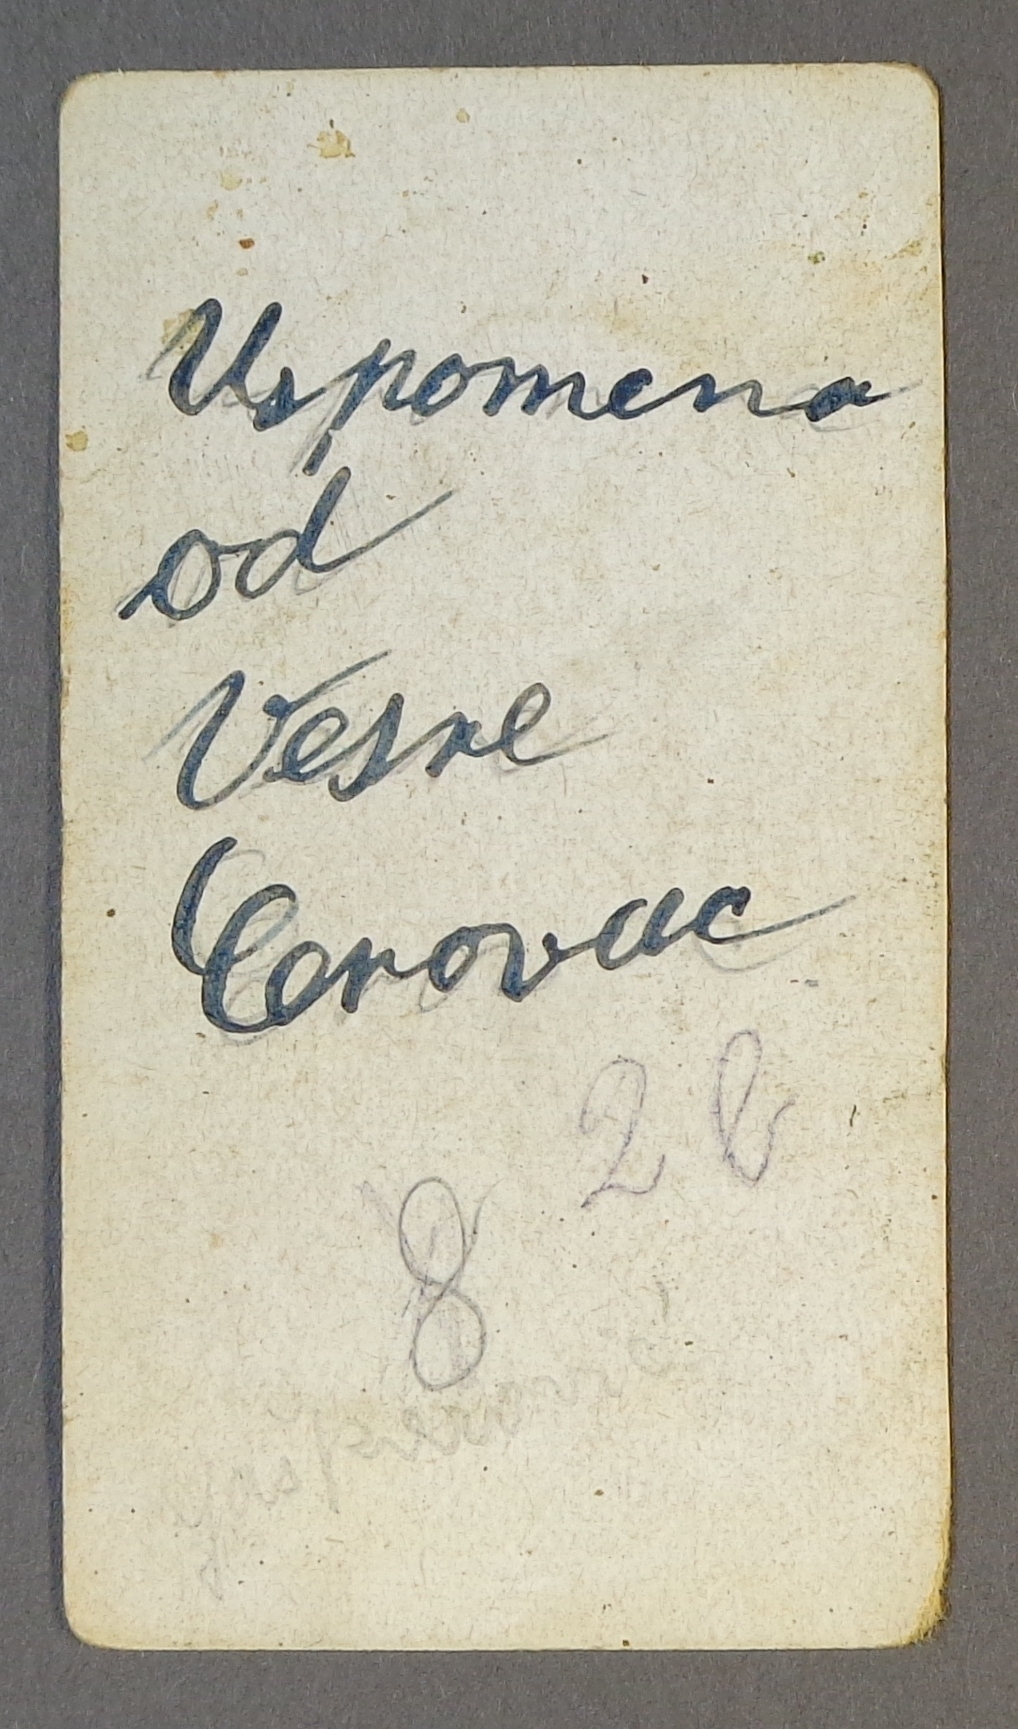 Uspomena
od
Vesne
Cerovac
8